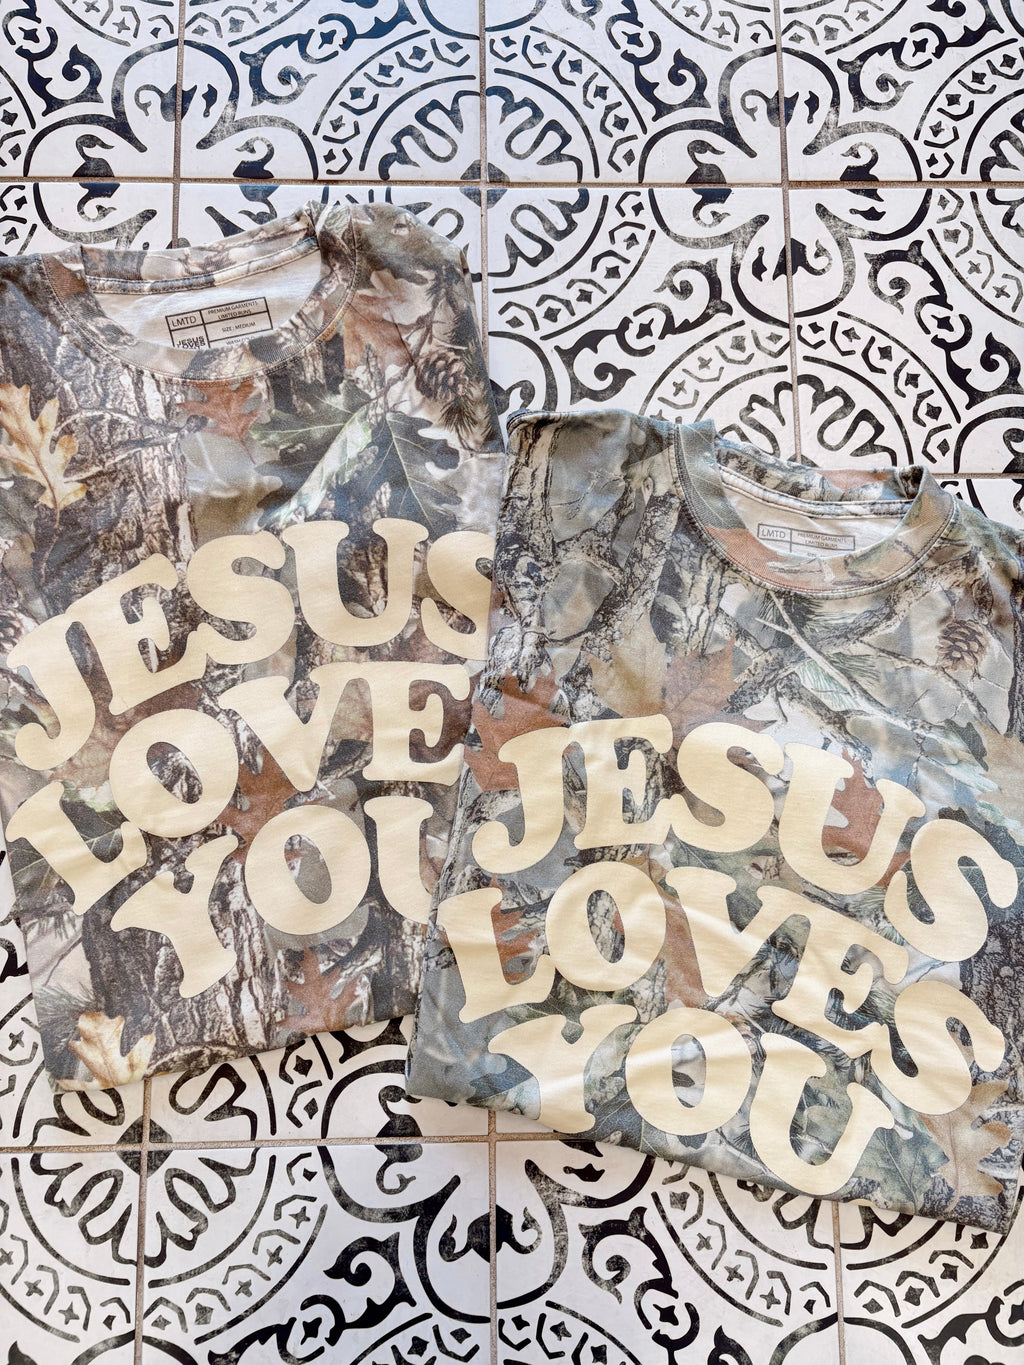 LMTD
PREMIUM GARMENTS
LIMITED RUNS
SIZE : MEDIUM
JESUS
LOVES
JESUS
LOVE
YOU
LMTD
PREMIUM GARMENTS
LIMITED RUNS
JESUS
LOVES
YOU